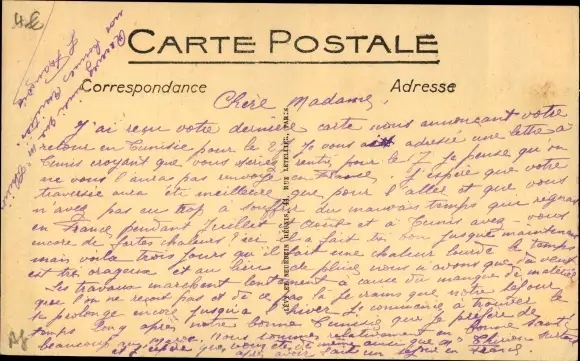 CARTE POSTALE
Correspondance
Adresse
Chère Madame,
J'ai reçu votre dernière carte nous annonçant votre
retour en Tunisie pour le 2 Je vous ai adressé une lettre à
Tunis croyant que vous seriez rentré pour le 7. Je pense qu'on
ne vous l'aura pas renvoyé en J'espère que votre
traversée aura été meilleure que pour l'aller et que vous
n'avez pas eu trop à souffrir du mauvais temps que
en France pendant Juillet et Août et à Tunis avez-vous
encore de fortes chaleurs? ici il a fait très bon jusque maintenant
mais voilà trois jours qu'il fait une chaleur lourde le temps
est très orageux et au lieu de pluie nous n'avons que du vent
Les travaux marchent lentement à cause du manque de matériel
que l'on ne reçoit pas et de ce pas là je crains que notre séjour
se prolonge encore jusqu'à l'hiver. Je commence à trouver le
temps long après notre bonne Tunisie que je préfère de
beaucoup au Maroc. Nous sommes en bonne santé
et j'espère que de même ainsi que
après avoir fait un en France
LEVY ET NEURDEIN RÉUNIS, 44, RUE LETELLIER, PARIS
Recevez ainsi que Mr
nos bonnes